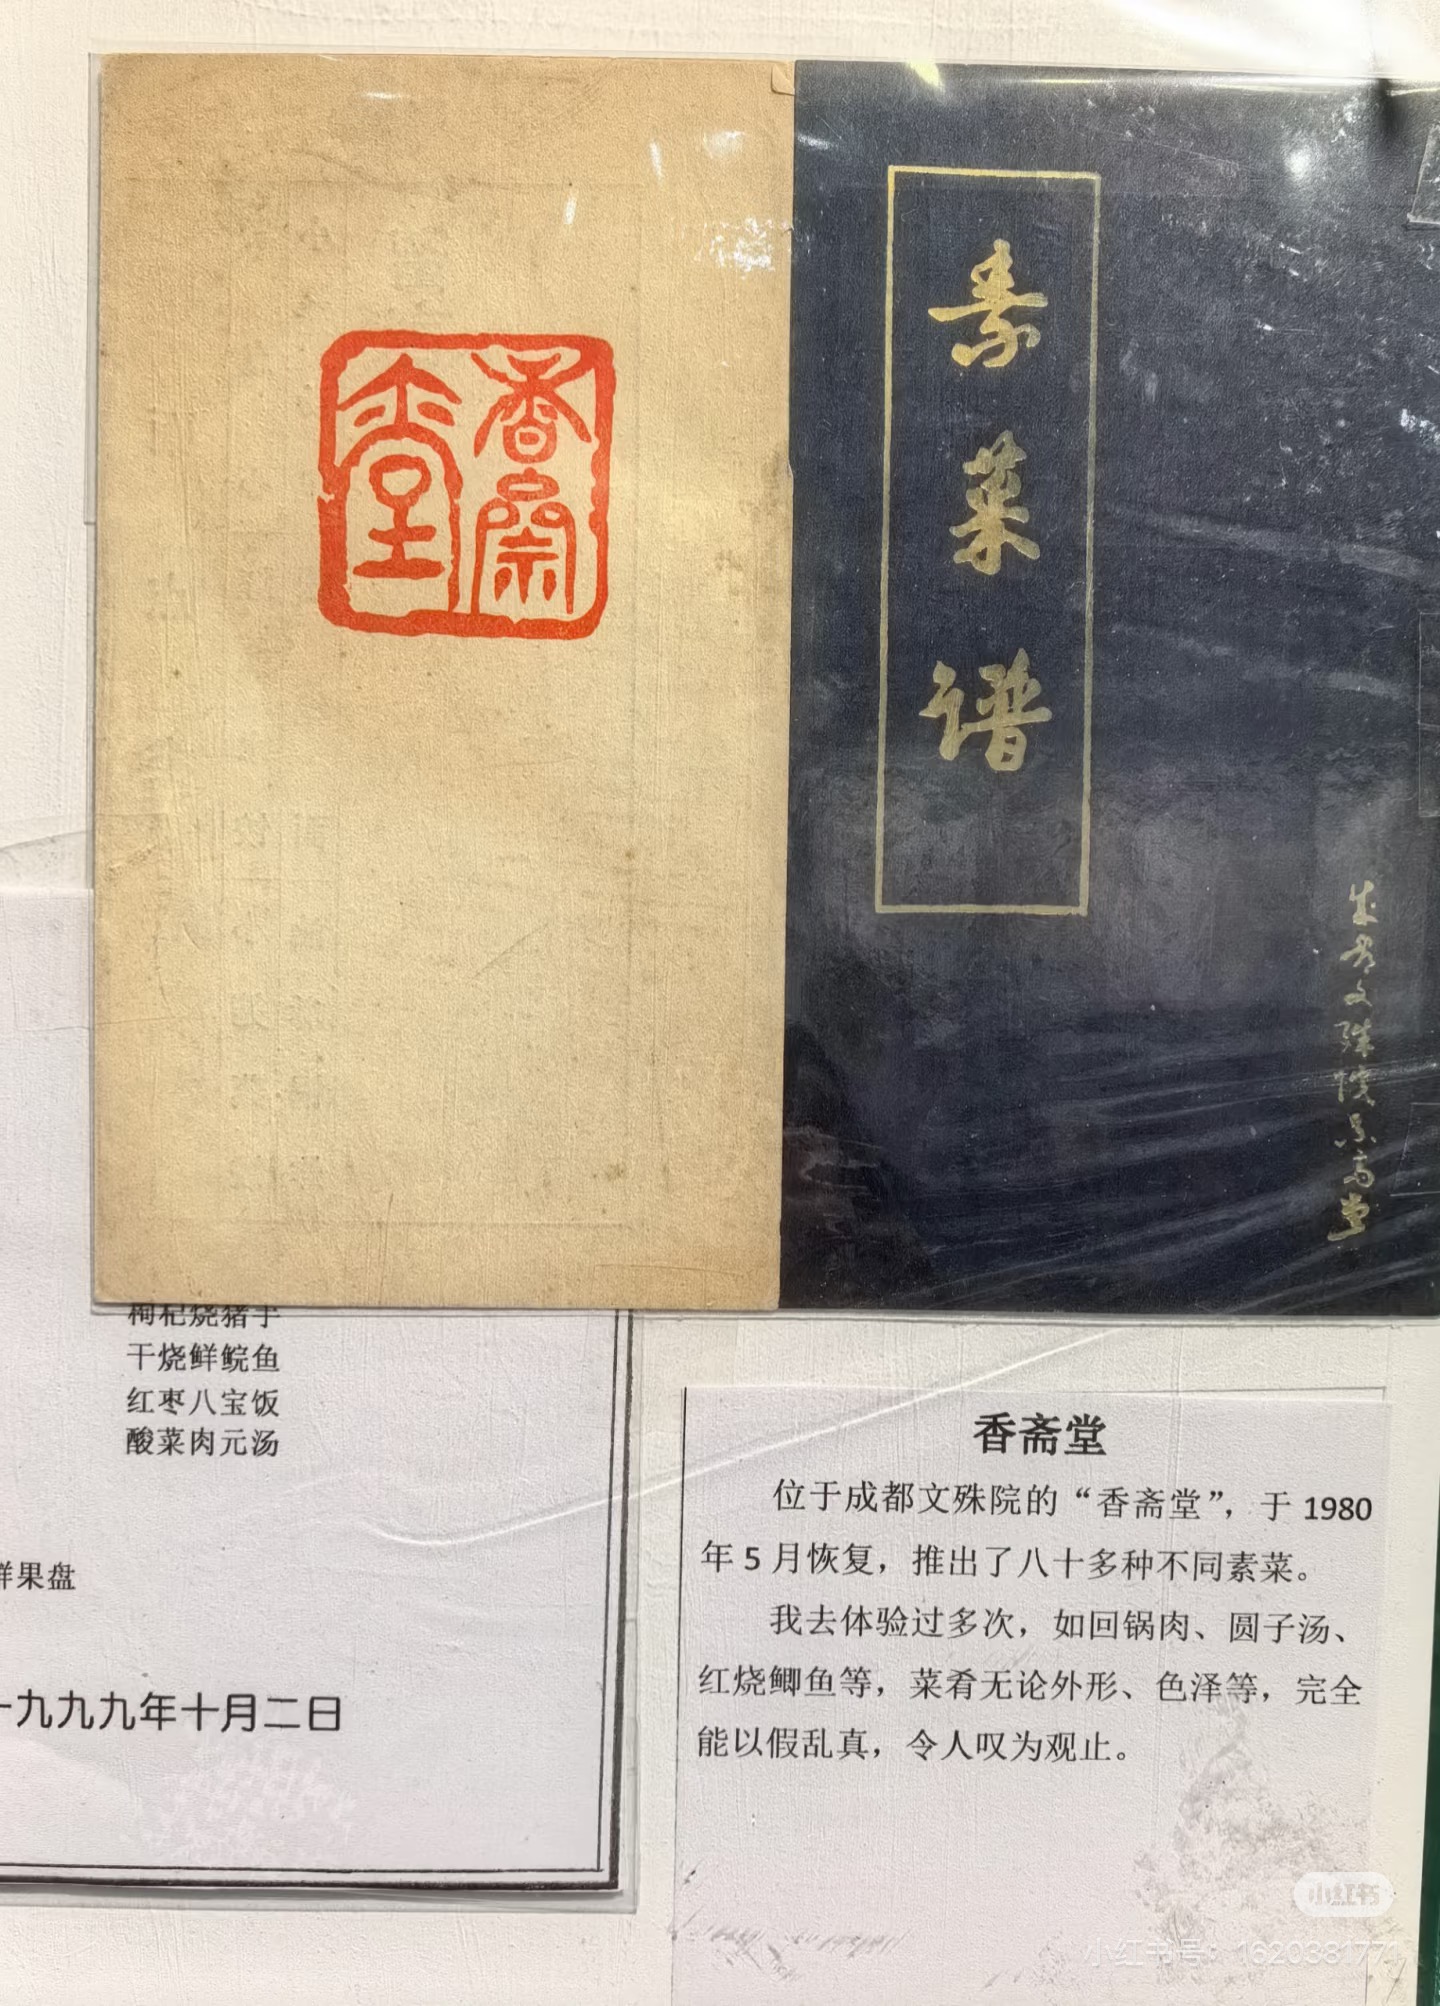 香斋堂
素菜谱
成都文殊院香斋堂
枸杞烧猪手
干烧鲜鲩鱼
红枣八宝饭
酸菜肉元汤
鲜果盘
一九九九年十月二日
香斋堂
位于成都文殊院的“香斋堂”，于 1980
年 5 月恢复，推出了八十多种不同素菜。
我去体验过多次，如回锅肉、圆子汤、
红烧鲫鱼等，菜肴无论外形、色泽等，完全
能以假乱真，令人叹为观止。
小红书
小红书号：1620381771